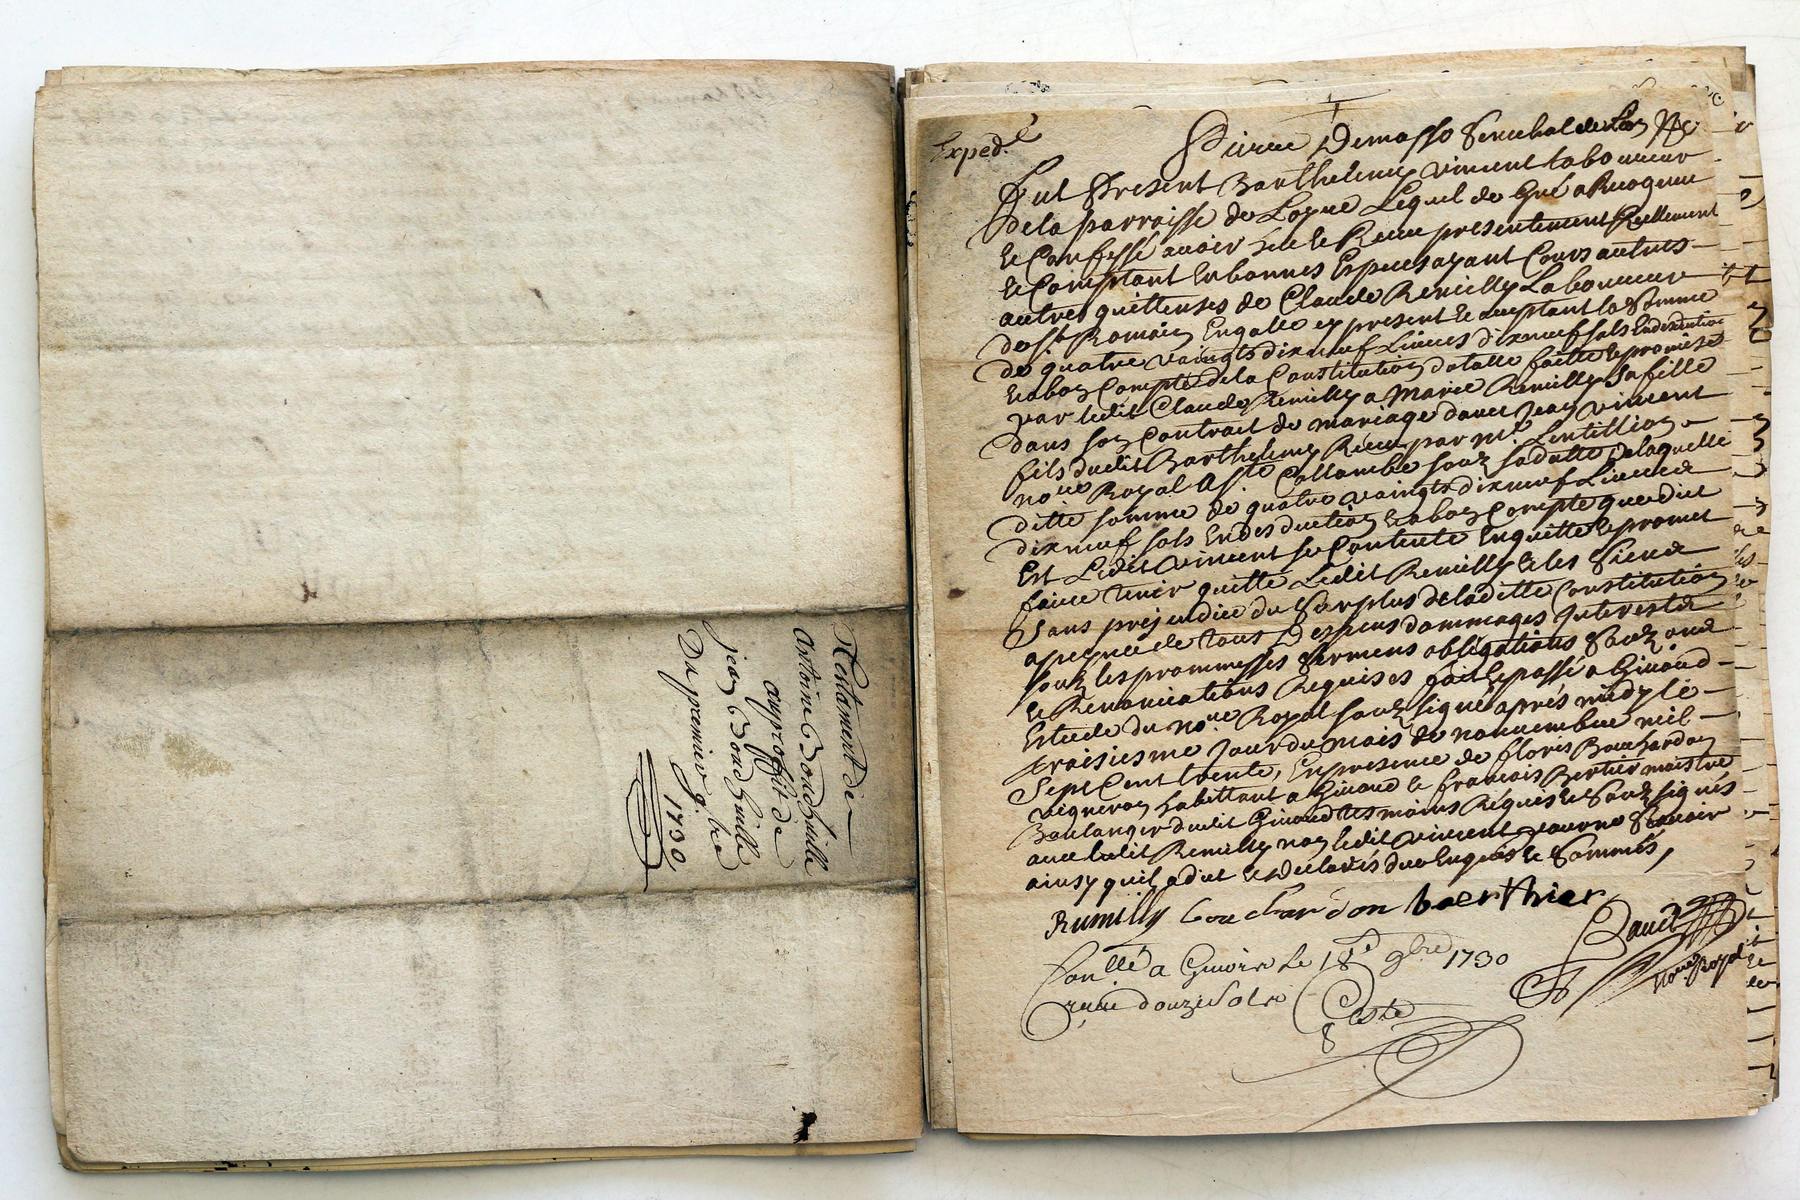 Testament de
Antoine Bonchuille
au proffit de
jean Bonchuille
Du premier 9.bre
1730
Exped.é
Pierre Demasso Senechal de Lion &c
fut Present Barthelemy vincent laboureur
de la parroisse de Loyre Lequel de Gré a Recogneu
et Confessé auoir Eu et Receu presentement Reellement
et Comptant En bonnes Especes ayant Cours autres
autres quittenses de Claude Remilly Laboureur
de st Romain En galle cy present et acceptant la Somme
de quatre vaingts dix neuf Liures dix neuf sols En desduction
et a bon Compte de la Constitution dotalle faitte et promise
par ledit Claude Remilly a Marie Remilly sa fille
dans son Contract de mariage dauec Jean vincent
fils dudit Barthelemy Receu par mt. Lentillion
no.re Royal a ste Collombe souz sa datte, de laquelle
ditte somme de quatre vaingts dix neuf Liures
dix neuf sols En desduction et a bon Compte que dict
Est Ledit vincent se Contente En quitte et promet
faire tenir quitte Ledit Remilly et les Siens
Sans prejudice du Surplus de laditte Constitution
a peyne de tous Despens dommages Interests
souz les prommesses Sermens obligations Souz ons
et Renonciations Requises fait et passé a Giuord
Estude du no.re Royal souz signé aprés midy le
troisiesme Jour du mois de nouuembre mil
Sept Cent trente, En presence de flores Bouchardon
vigneron habittant a Giuord et francois Bertier maistre
Boulanger dudit Giuord tesmoins Requis et Souz signés
auec ledit Remilly non ledit vincent pour ne Scauoir
ainsy quil a dict et declaré deuo Enquis et Sommés,
Rumilly bouchardon berthier
Con.llé a Giuors Le 18e 9bre 1730
Receu douze sols
Coste
no.re Royal